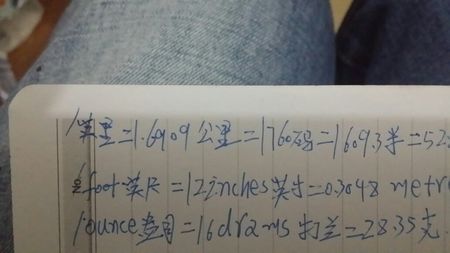 1英里=1.6909公里=1760码=1609.3米=52
foot英尺=12inches英寸=0.3048 metr
1ounce盎司=16drams打兰=28.35克